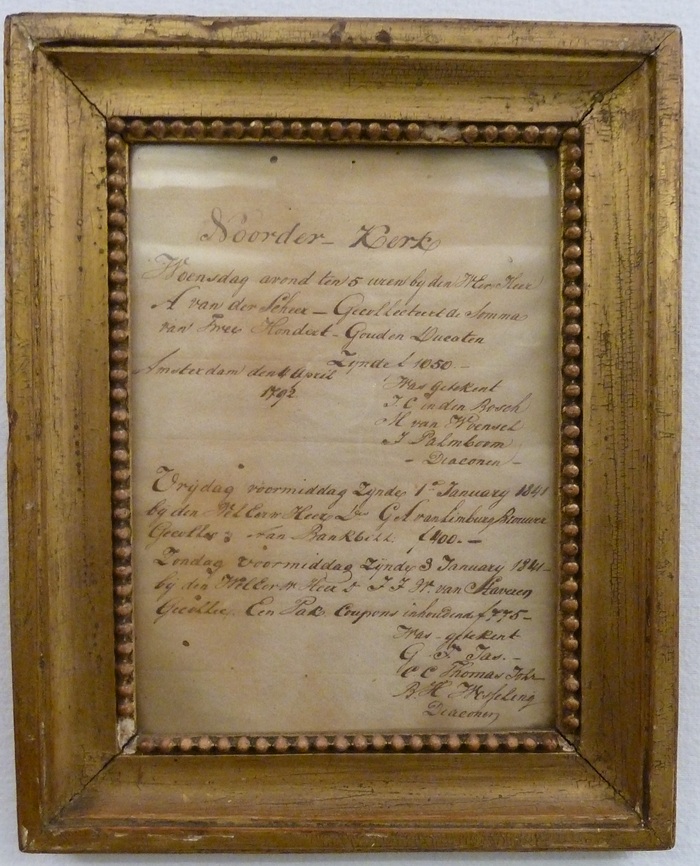 Noorder- Kerk
Woensdag avond ten 5 uren by den WEerw Heer
A van der Scheer - Gecollecteerd de Somma
van Twee Hondert - Gouden Ducaten
Zynde f 1050 -
Amsterdam den 4 April
1792
Was getekent
I C in den Bosch
H van Woensel
I Palmboom
- Diaconen -
Vrydag voormiddag Zynde 1 January 1841
by den WelEerw Heer G A van Limburg Brouwer
Gecolle: van Bankbill f 400. -
Zondag voormiddag Zynde 3 January 1841
by den WelEerw Heer I I van Staveren
Gecollec Een Pak Coupons inhoudend f 775 -
Was - getekent
G F Tas. -
C C Thomas
B. H Wesseling
Diaconen